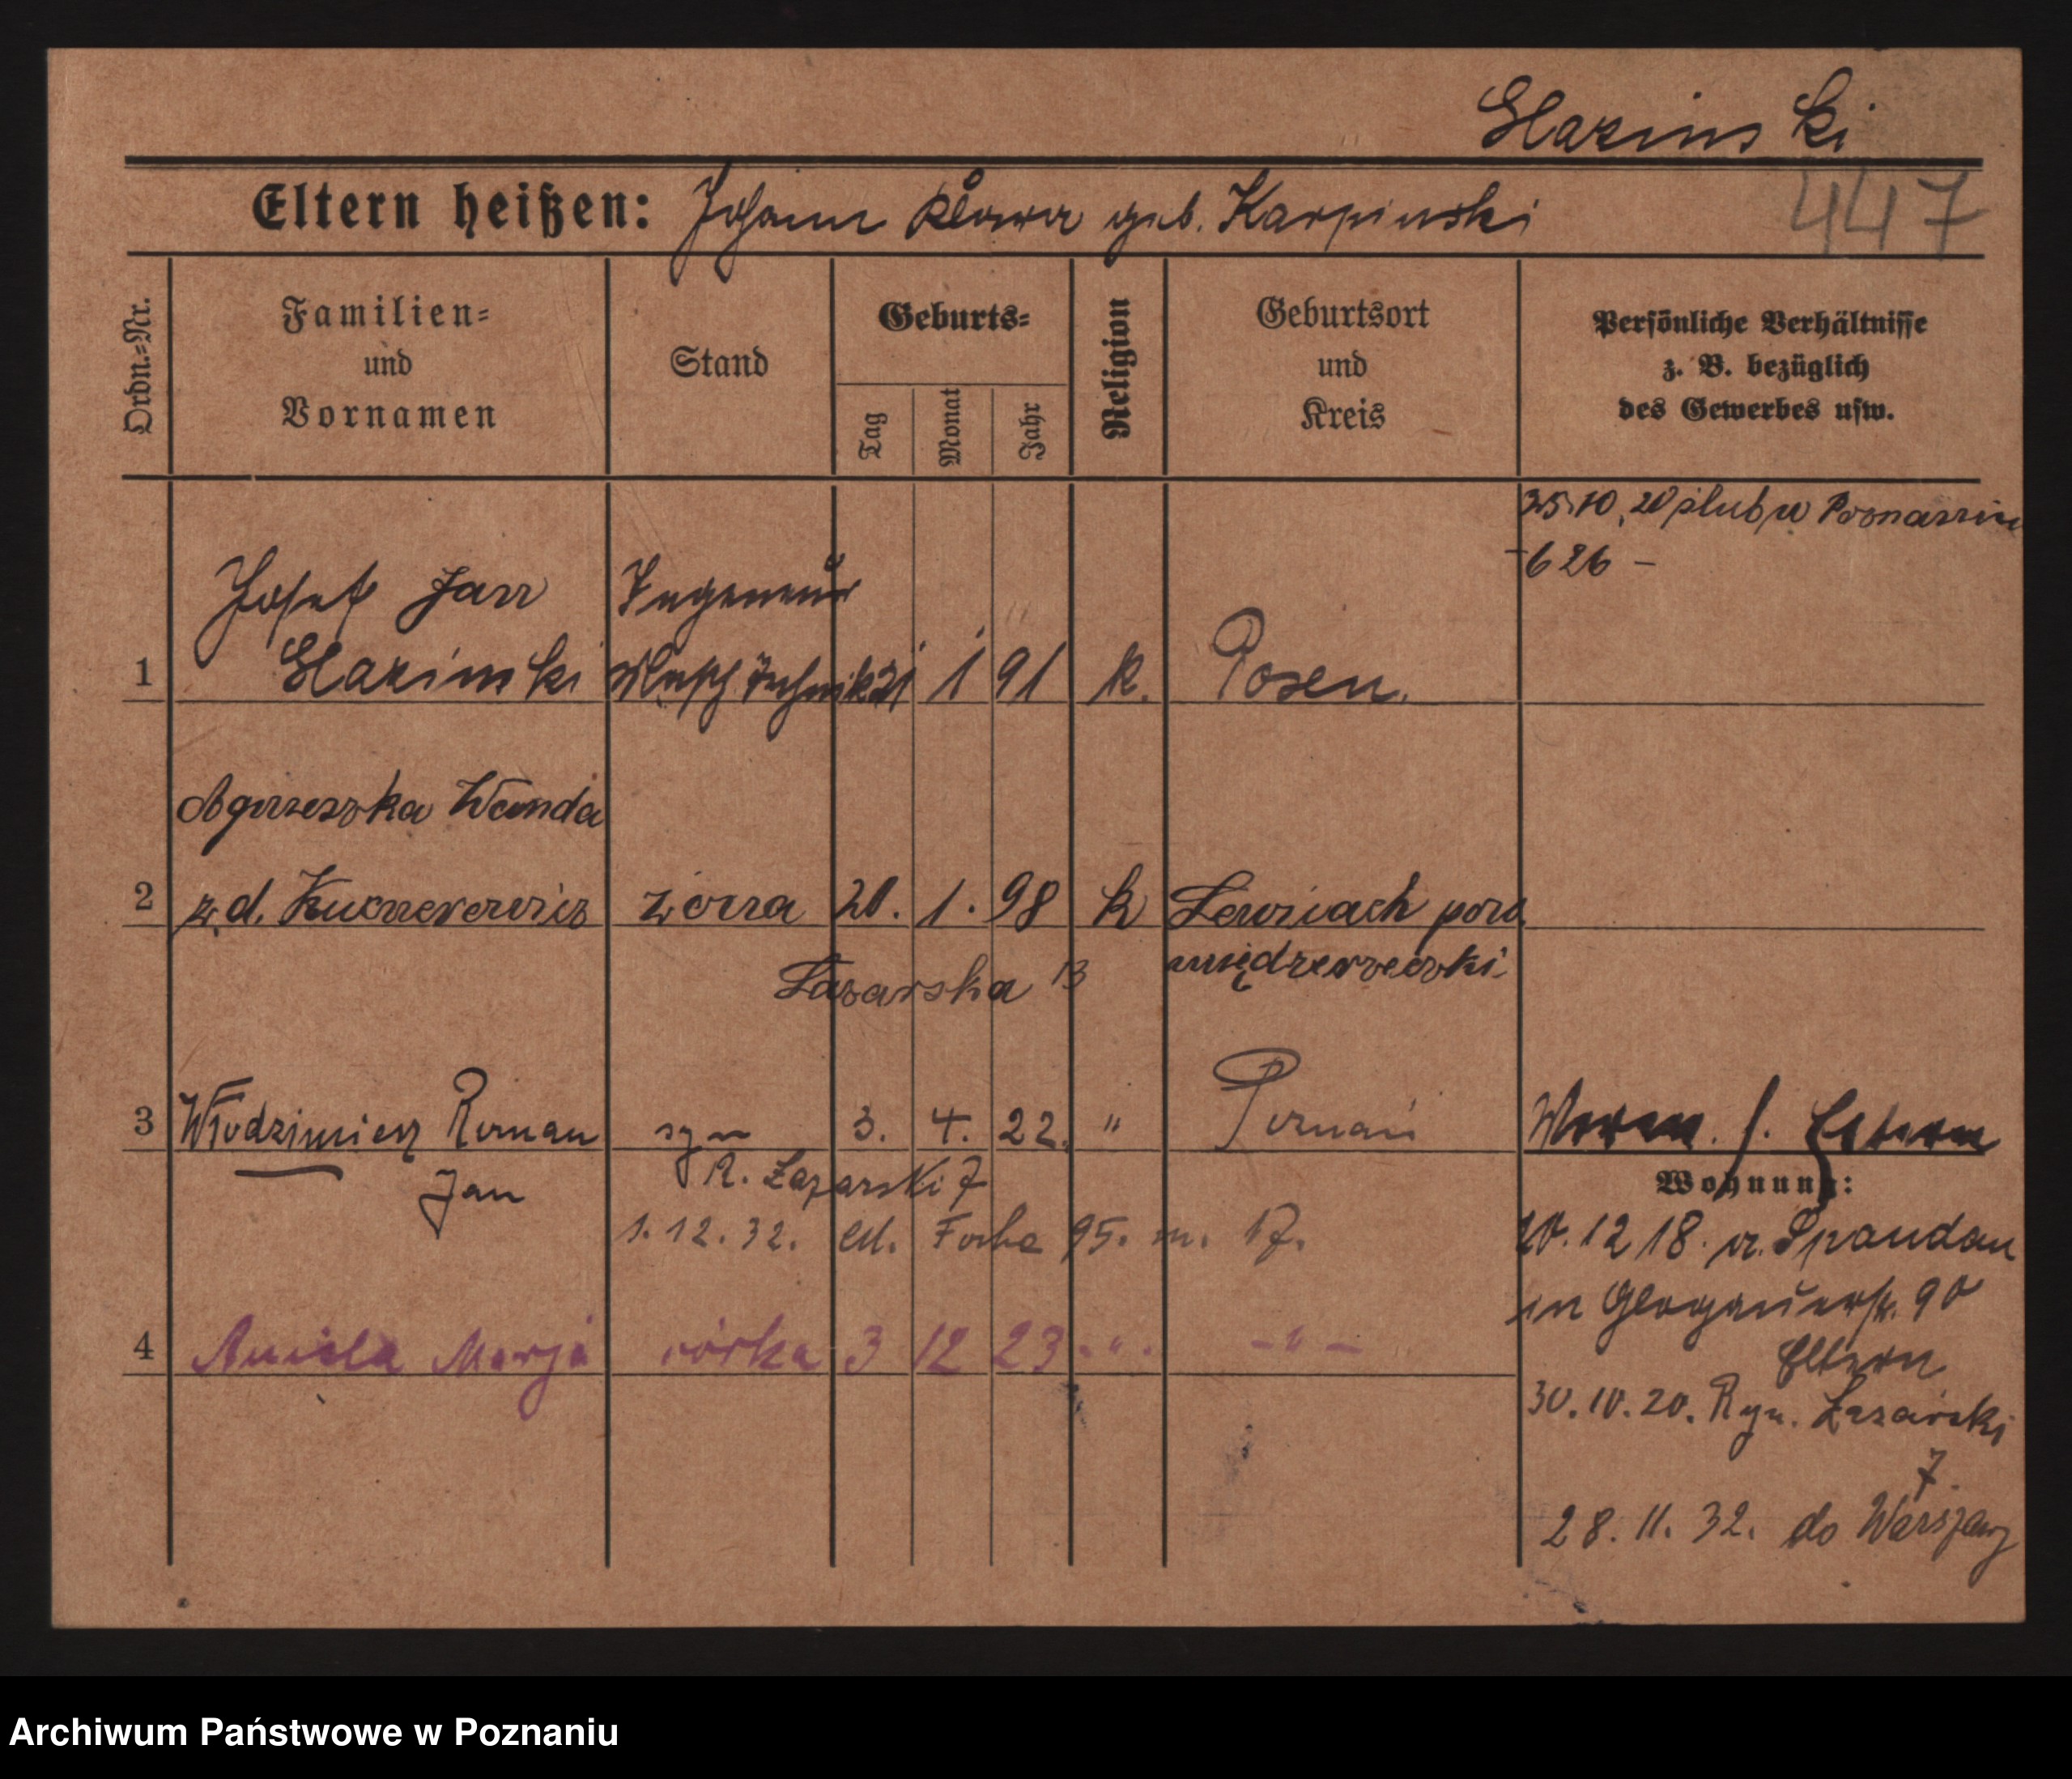 Glazinski
Eltern heißen: Johann Klara geb. Karpinski
447
Ordn.=Nr.
Familien=
und
Vornamen
Stand
Geburts=
Tag
Monat
Jahr
Religion
Geburtsort
und
Kreis
Persönliche Verhältnisse
z. B. bezüglich
des Gewerbes usw.
25.10.20 ślub w Poznaniu
- 626 -
Josef Jan Ingeneur
1 Glazinski Masch Technik 21 1 91 k. Posen.
Agnieszka Wanda
2 z.d. żona 20. 1. 98 k pow.
międzyrzecki
Łazarska 13
3 Włodzimierz Roman syn 3. 4. 22. " Poznań Eltern
Jan
R. Łazarski 7
Wohnung:
1.12.32. ul. Focha 95. m. 17.
20.12 18. v. Spandau
in Glogauerstr. 90
Eltern
4 Aniela Marja córka 3 12 23 - " - - " -
30.10.20. Ryn. Łazarski
7.
28. 11. 32. do Warszawy
Archiwum Państwowe w Poznaniu